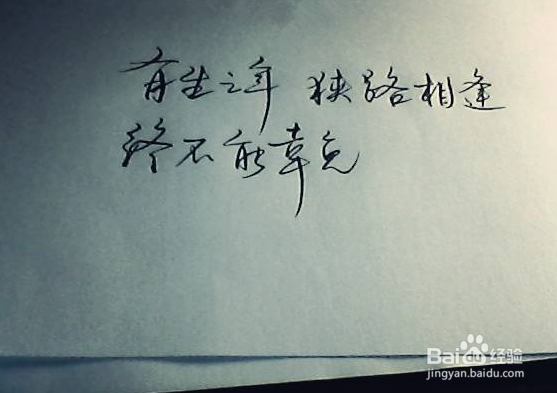 有生之年 狭路相逢
终不能幸免
Baidu经验
jingyan.baidu.com